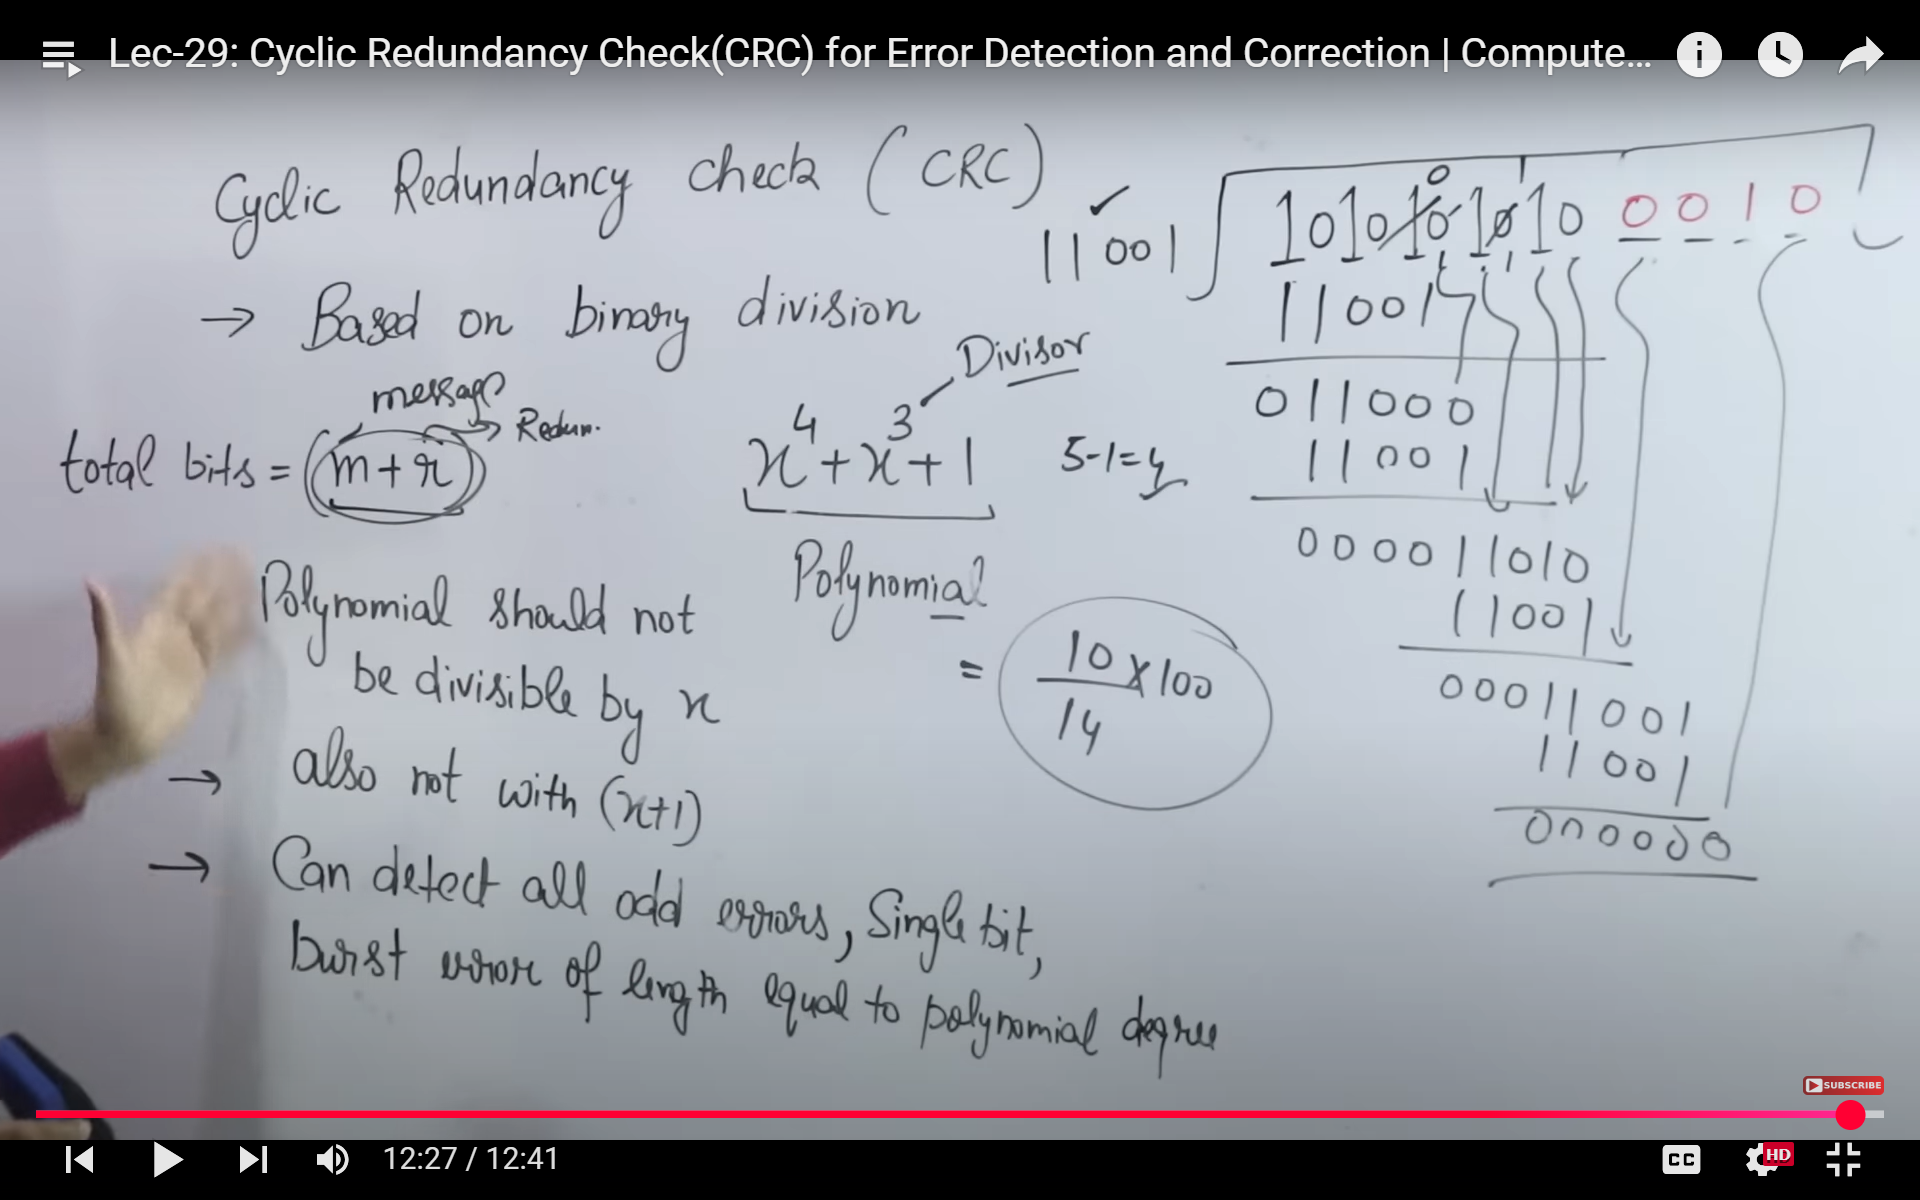 Lec-29: Cyclic Redundancy Check(CRC) for Error Detection and Correction | Compute...
Cyclic Redundancy Check (CRC)
→ Based on binary division
message
Redun.
total bits = (m + r)
Divisor
x⁴ + x³ + 1
5-1=4
Polynomial
Polynomial should not
be divisible by x
→ also not with (x+1)
= 10/14 × 100
→ Can detect all odd errors, Single bit,
burst error of length equal to polynomial degree
0
11001
1010101010 0010
11001
011000
11001
000011010
11001
00011001
11001
000000
SUBSCRIBE
12:27 / 12:41
CC
HD